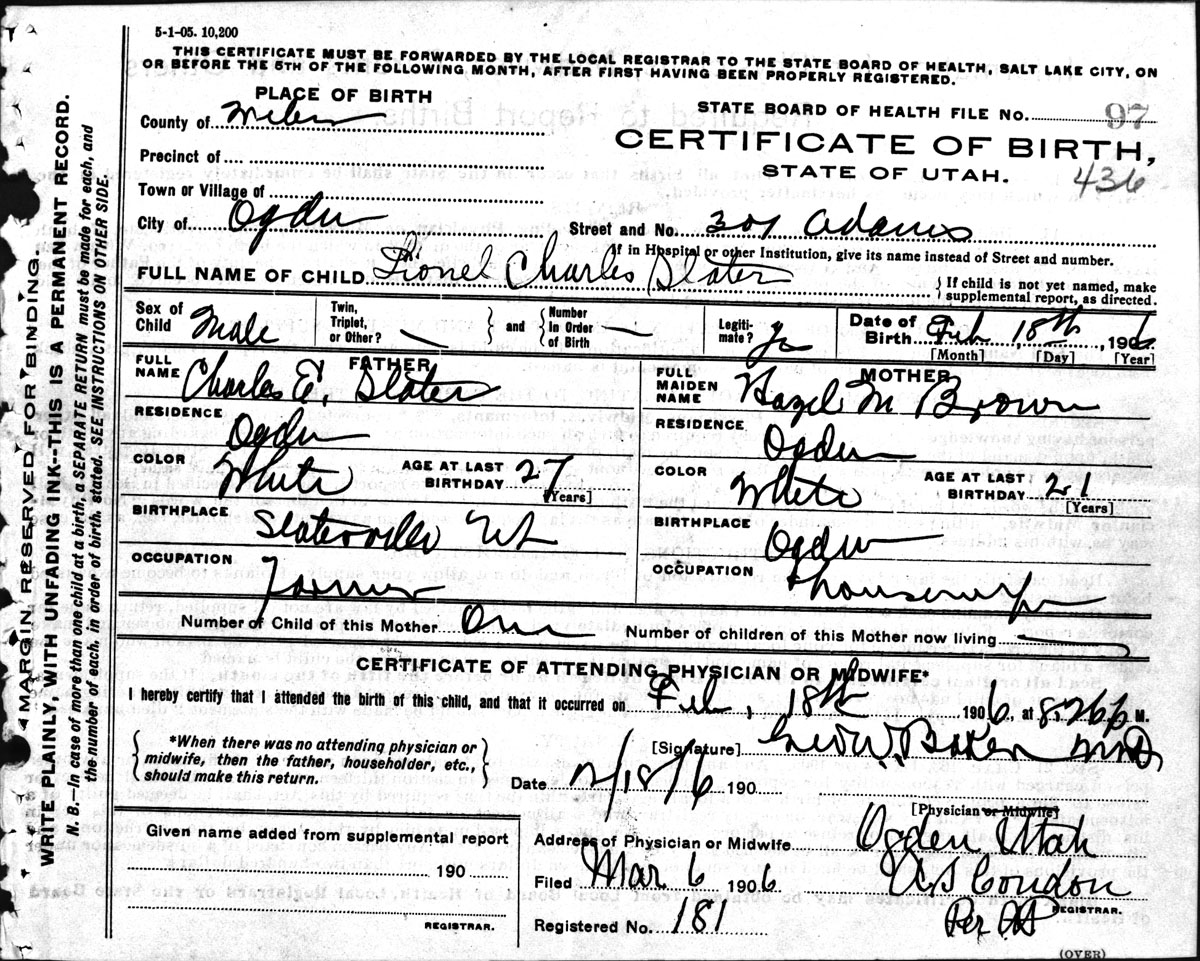 5-1-05. 10,200
THIS CERTIFICATE MUST BE FORWARDED BY THE LOCAL REGISTRAR TO THE STATE BOARD OF HEALTH, SALT LAKE CITY, ON
OR BEFORE THE 5TH OF THE FOLLOWING MONTH, AFTER FIRST HAVING BEEN PROPERLY REGISTERED.
PLACE OF BIRTH
County of Weber
Precinct of
Town or Village of
City of Ogden
STATE BOARD OF HEALTH FILE No. 97
CERTIFICATE OF BIRTH,
STATE OF UTAH. 436
Street and No. 301 Adams
If in Hospital or other Institution, give its name instead of Street and number.
FULL NAME OF CHILD Lionel Charles Slater
If child is not yet named, make
supplemental report, as directed.
Sex of Child Male
Twin, Triplet, or Other? —
and Number In Order of Birth —
Legitimate?
Date of Birth Feb 18th, 1906
[Month] [Day] [Year]
FATHER
FULL NAME Charles E. Slater
RESIDENCE Ogden
COLOR White AGE AT LAST BIRTHDAY 27 [Years]
BIRTHPLACE Slaterville Ut
OCCUPATION Farmer
MOTHER
FULL MAIDEN NAME Hazel M Brown
RESIDENCE Ogden
COLOR White AGE AT LAST BIRTHDAY 21 [Years]
BIRTHPLACE Ogden
OCCUPATION Housewife
Number of Child of this Mother One Number of children of this Mother now living
CERTIFICATE OF ATTENDING PHYSICIAN OR MIDWIFE*
I hereby certify that I attended the birth of this child, and that it occurred on Feb, 18th 1906, at 8,26 p M.
*When there was no attending physician or
midwife, then the father, householder, etc.,
should make this return.
[Signature] Geo W. Baker MD
Date 2/18/6 190
[Physician or Midwife]
Given name added from supplemental report
190
REGISTRAR.
Address of Physician or Midwife Ogden Utah
Filed Mar 6 1906 Condon
REGISTRAR.
Registered No. 181 Per
(OVER)
MARGIN RESERVED FOR BINDING.
WRITE PLAINLY, WITH UNFADING INK--THIS IS A PERMANENT RECORD.
N. B.—In case of more than one child at a birth, a SEPARATE RETURN must be made for each, and
the number of each, in order of birth, stated. SEE INSTRUCTIONS ON OTHER SIDE.